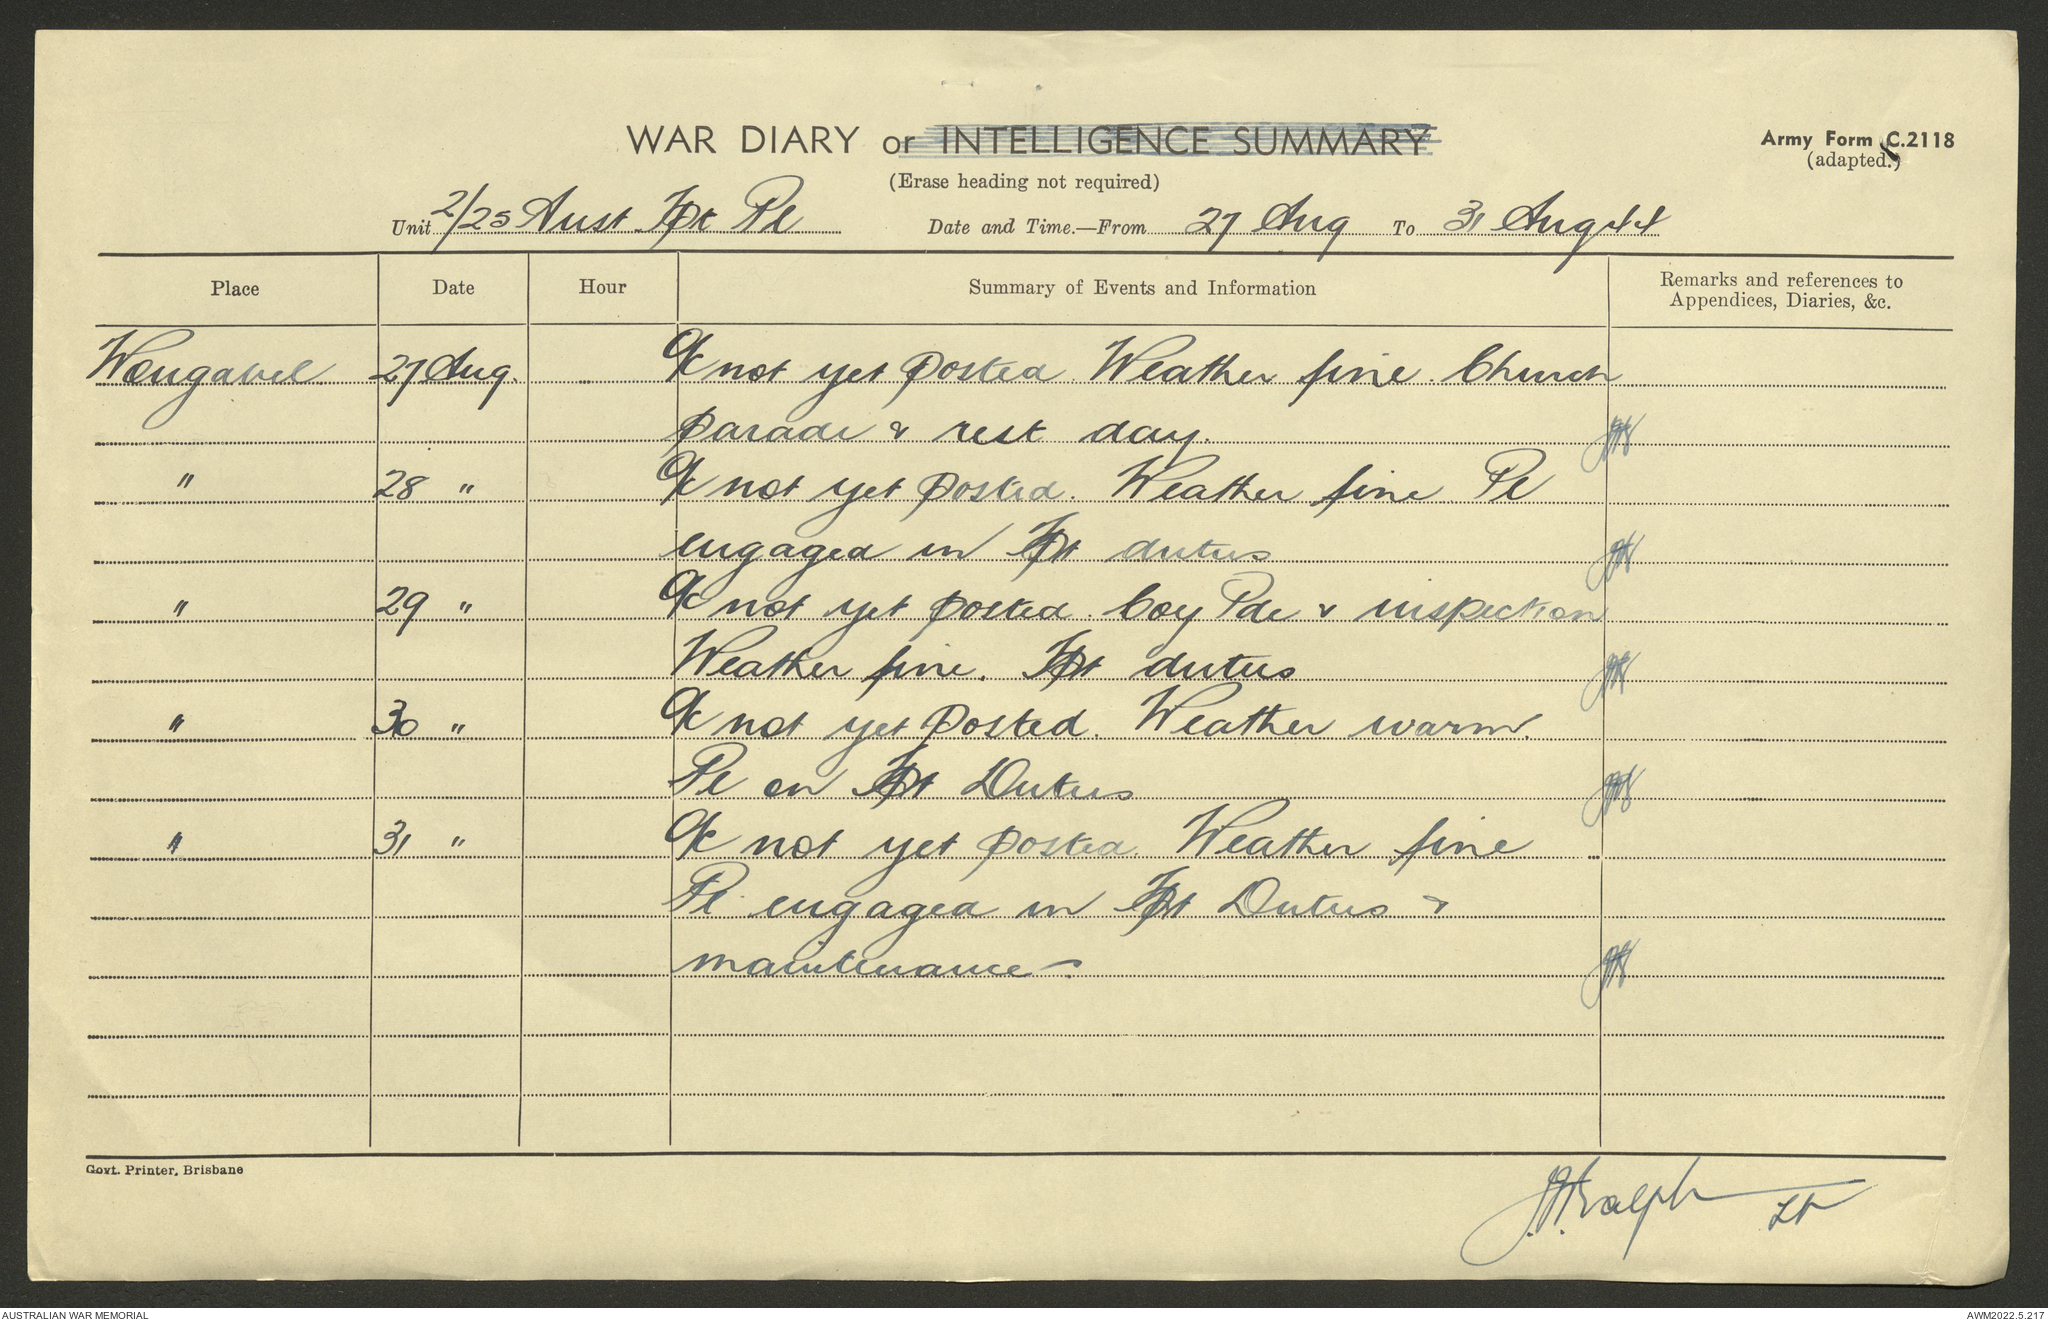 WAR DIARY or INTELLIGENCE SUMMARY
Army Form C.2118
(adapted.)
(Erase heading not required)
Unit 2/25 Aust Tpt Pl Date and Time.—From 27 Aug To 31 Aug 44
Place Date Hour Summary of Events and Information Remarks and references to
Appendices, Diaries, &c.
Wongabel 27 Aug. OC not yet posted. Weather fine. Church
parade & rest day.
" 28 " OC not yet posted. Weather fine Pl
engaged in Tpt duties
" 29 " OC not yet posted. Coy Pde & inspection
Weather fine. Tpt duties
" 30 " OC not yet posted. Weather warm.
Pl on Tpt Duties
" 31 " OC not yet posted. Weather fine
Pl. engaged in Tpt Duties &
maintenance
Govt. Printer, Brisbane
Ralph Lt
AUSTRALIAN WAR MEMORIAL
AWM2022.5.217